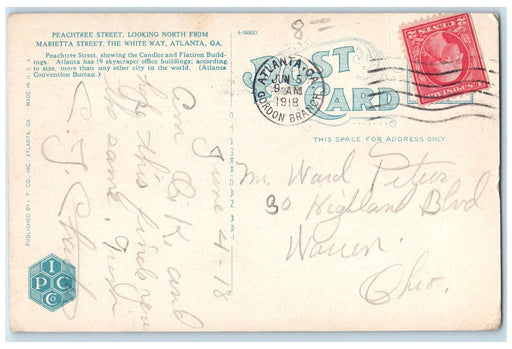 PEACHTREE STREET, LOOKING NORTH FROM
MARIETTA STREET, THE WHITE WAY, ATLANTA, GA.
Peachtree Street, showing the Candler and Flatiron Build-
ings. Atlanta has 19 skyscraper office buildings; according
to size, more than any other city in the world. (Atlanta
Convention Bureau.)
A-19860
POST
CARD
ATLANTA, GA.
JUN 5
9 AM
1918
GORDON BRANCH
THIS SPACE FOR ADDRESS ONLY.
June 4-18
Am O.K. and
hope this finds you
same.
Mr. Ward Peters
30 Highland Blvd
Warren.
Ohio.
PUBLISHED BY I. P. CO., INC., ATLANTA, GA.
MADE IN
I
P C
Co
2 CENTS 2